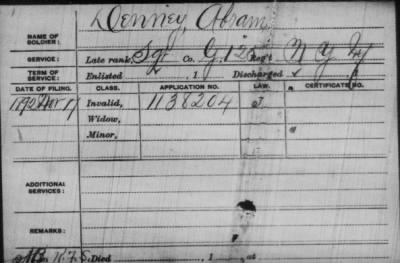 Denney, Abram
NAME OF SOLDIER:
SERVICE: Late rank, Sgt Co. G, 125 Reg't N Y
TERM OF SERVICE: Enlisted , 1 Discharged , 1
DATE OF FILING. CLASS. APPLICATION NO. LAW. CERTIFICATE NO.
1892 17 Invalid, 1138204
Widow,
Minor,
ADDITIONAL SERVICES:
REMARKS:
Died , 1 , at